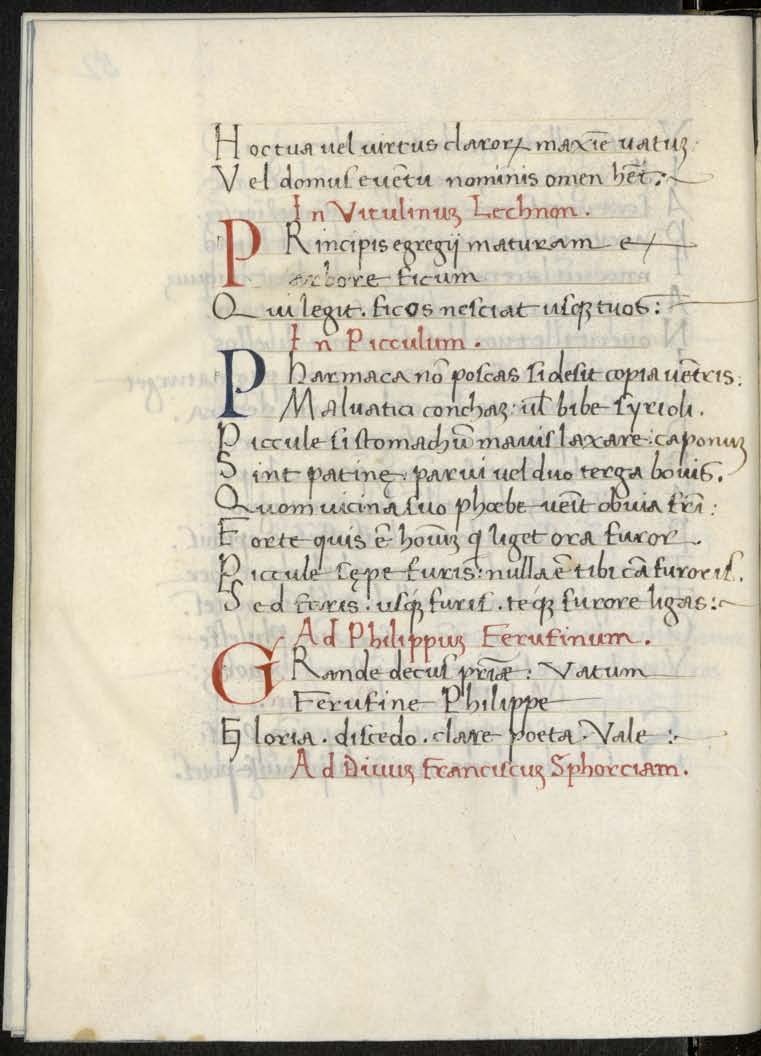 Hoctua uel uirtus claroꝝ maxĩe uatuꝫ.
Vel domuſ euẽtu nominis omen hẽt:~
In Vitulinuꝫ Lechnon.
PRincipis egregij maturam ex
arbore ficum
Qui legit. ficos neſciat uſqꝫ tuos:
In Picculum.
Pharmaca nõ poſcas ſi deſit copia uẽtris:
Maluatici conchaꝫ: ul̃ bibe ſyrioli.
Piccule ſi ſtomachũ mauiſ laxare: caponuꝫ
Sint patinę. parui uel duo terga bouiſ.
Quom uicina ſuo phœbe uẽit obuia fr̃i:
Forte quis ẽ hoĩuꝫ q̃ liget ora furor.
Piccule ſępe furis: nulla ẽ tibi cã furoriſ.
Sed feris. uſqꝫ furiſ. teqꝫ furore ligas:~
Ad Philippuꝫ Feruſinum.
GRande decuſ prĩæ: Vatum
Feruſine Philippe
Gloria. diſcedo. clare poeta. Vale :~
Ad Diuuꝫ Franciſcuꝫ Sphorciam.